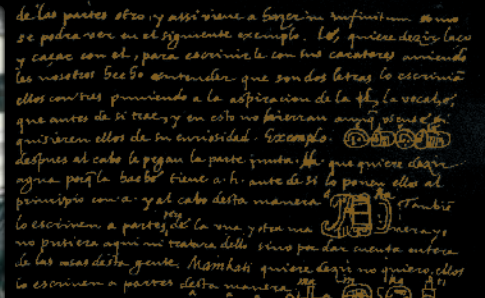 de las partes otro, y assi viene a hazer in infinitum como
se podra ver en el siguiente exemplo. Lé, quiere dezir laço
y caçar con el, para escrivirle con sus carateres aviendo
les nosotros hecho entender que son dos letras lo escrivian
ellos con tres puniendo a la aspiracion de la h, la vocal é,
que antes de si trae, y en esto no hierran aunq
quisieren ellos de su curiosidad. Exemplo.
despues al cabo le pegan la parte junta. Ha que quiere dezir
agua porq̃ la tiene a. h. ante de si lo ponen ellos al
principio con a. y al cabo desta manera Tambiẽ
lo escriven a partes de la una y otra ma nera yo
no pusiera aqui ni tratara dello sino por dar cuenta entera
de las cosas desta gente. Mainkati quiere dezir no quiero, ellos
lo escriven a partes desta manera